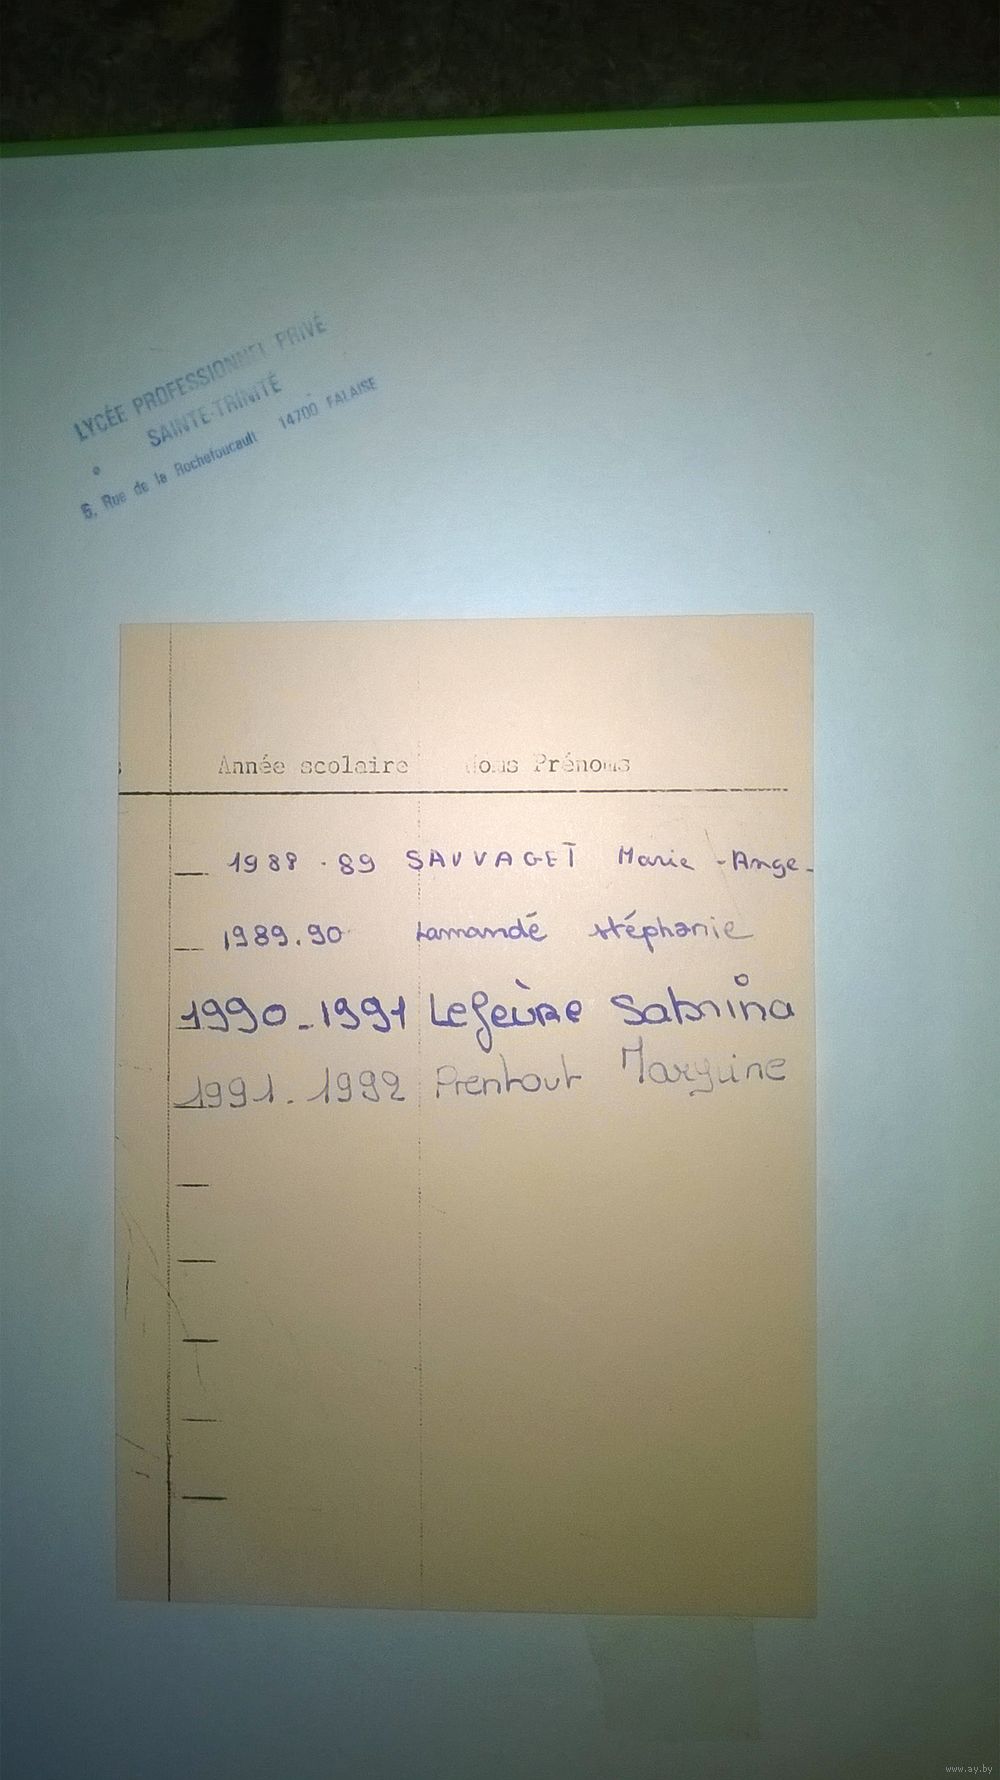 LYCÉE PROFESSIONNEL PRIVÉ
SAINTE-TRINITÉ
5, Rue de la Rochefoucault 14700 FALAISE
s Année scolaire Noms Prénoms
1988-89 SAUVAGET Marie-Ange
1989.90 Lamandé stéphanie
1990-1991 Lefeùvre Sabrina
1991.1992 Prentout
www.ay.by